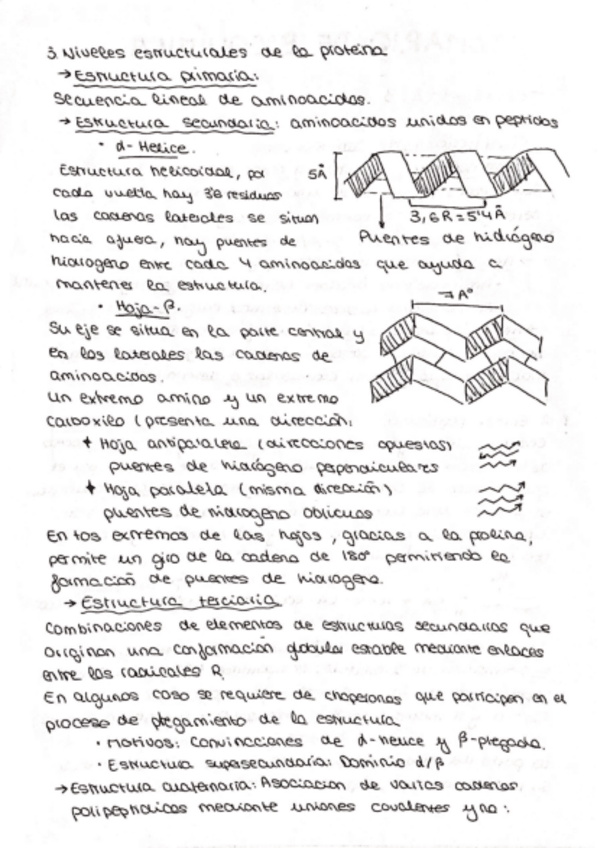 3. Niveles estructurales de la proteína
→ Estructura primaria:
Secuencia lineal de aminoacidos.
→ Estructura secundaria: aminoacidos unidos en peptidos
· α-Helice.
Estructura helicoidal, por
cada vuelta hay 3'6 residuos
las cadenas laterales se situan
hacia afuera, hay puentes de
hidrogeno entre cada 4 aminoacidos que ayuda a
mantener la estructura.
5Å
3,6R=5'4Å
Puentes de hidrógeno
· Hoja-β.
Su eje se situa en la parte central y
en los laterales las cadenas de
aminoacidos.
Un extremo amino y un extremo
carboxilo (presenta una dirección)
7 A°
+ Hoja antiparalela (direcciones opuestas)
puentes de hidrógeno perpendiculares
+ Hoja paralela (misma dirección)
puentes de hidrogeno oblicuos
En los extremos de las hojas, gracias a la prolina,
permite un giro de la cadena de 180° permitiendo la
formación de puentes de hidrógeno.
→ Estructura terciaria
Combinaciones de elementos de estructuras secundarias que
originan una conformación globular estable mediante enlaces
entre los radicales R.
En algunos caso se requiere de chaperonas que participen en el
proceso de plegamiento de la estructura
· Motivos: Convinaciones de α-helice y β-plegada.
· Estructura supersecundaria: Dominio α/β
→ Estructura cuaternaria: Asociacion de varias cadenas
polipeptídicas mediante uniones covalentes y no: